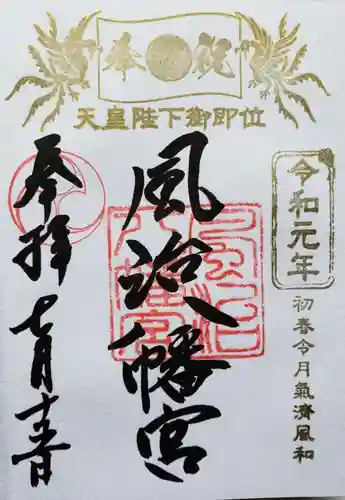 奉祝
天皇陛下御即位
令和元年
初春令月氣淸風和
風治八幡宮
奉拝
七月十五日